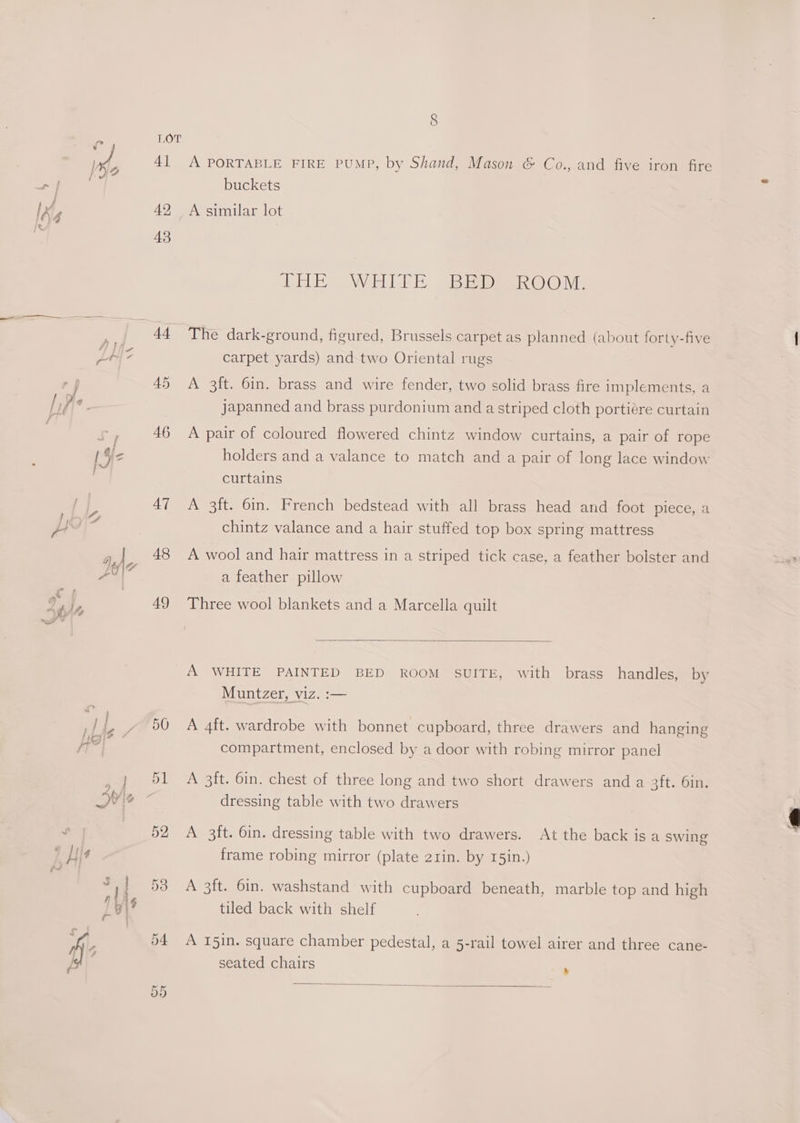 8
LOT
41 A PORTABLE FIRE PUMP, by Shand, Mason & Co., and five iron fire
buckets
42 A similar lot
43
THE WHITE BED ROOM.
44 The dark-ground, figured, Brussels carpet as planned (about forty-five
carpet yards) and two Oriental rugs
45 A 3ft. 6in. brass and wire fender, two solid brass fire implements, a
japanned and brass purdonium and a striped cloth portière curtain
46 A pair of coloured flowered chintz window curtains, a pair of rope
holders and a valance to match and a pair of long lace window
curtains
47 A 3ft. 6in. French bedstead with all brass head and foot piece, a
chintz valance and a hair stuffed top box spring mattress
48 A wool and hair mattress in a striped tick case, a feather bolster and
a feather pillow
49 Three wool blankets and a Marcella quilt
A WHITE PAINTED BED ROOM SUITE, with brass handles, by
Muntzer, viz. :—
50 A 4ft. wardrobe with bonnet cupboard, three drawers and hanging
compartment, enclosed by a door with robing mirror panel
51 A 3ft. 6in. chest of three long and two short drawers and a 3ft. 6in.
dressing table with two drawers
52 A 3ft. 6in. dressing table with two drawers. At the back is a swing
frame robing mirror (plate 21in. by 15in.)
53 A 3ft. 6in. washstand with cupboard beneath, marble top and high
tiled back with shelf
54 A 15in. square chamber pedestal, a 5-rail towel airer and three cane-
seated chairs
55